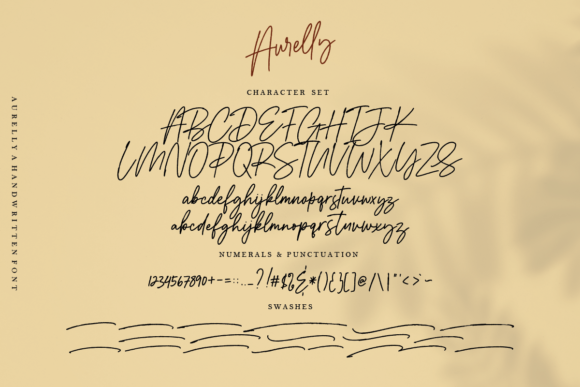 Aurelly
CHARACTER SET
ABCDEFGHIJK
LMNOPQRSTUVWXYZS
abcdefghijklmnopqrstuvwxyz
abcdefghijklmnopqrstuvwxyz
NUMERALS & PUNCTUATION
1234567890+-=::.._?!#$%&*(){}[]@/\|"'<>~
SWASHES
AURELLY A HANDWRITTEN FONT